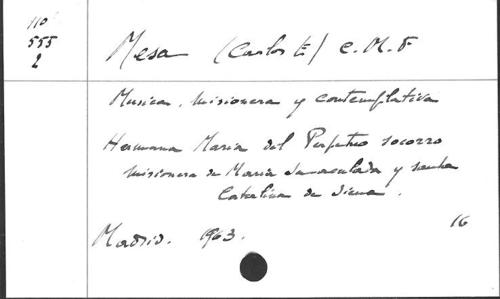 110
555
2
Mesa (Carlos E) C.M.F
Musica, misionera y contemplativa
Hermana Maria del Perpetuo Socorro
misionera de Maria Inmaculada y santa
Catalina de Siena.
Madrid. 1963.
16